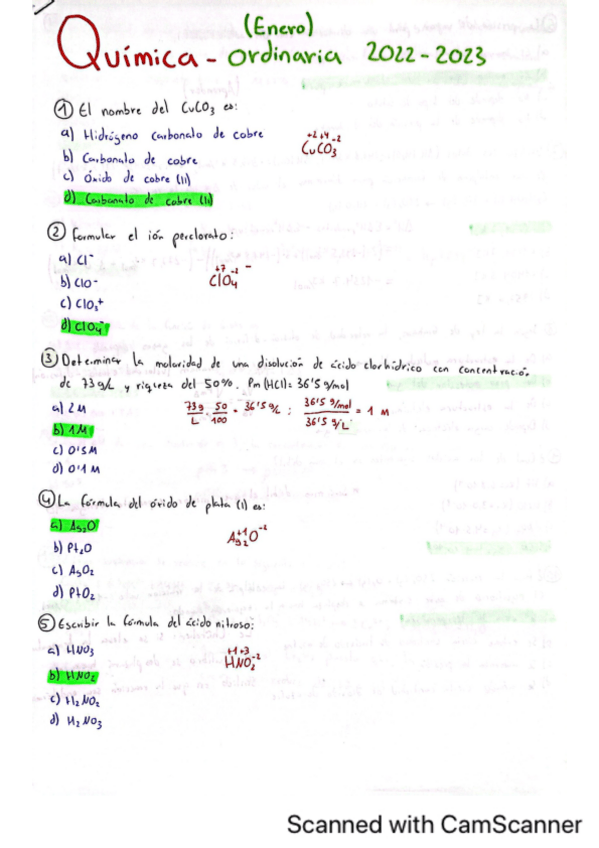 (Enero)
Química - Ordinaria 2022-2023
① El nombre del CuCO₃ es:
a) Hidrógeno carbonato de cobre
+2+4-2
CuCO₃
b) Carbonato de cobre
c) Óxido de cobre (II)
d) Carbonato de cobre (II)
② Formular el ión perclorato:
a) Cl⁻
+7 -2 -
b) ClO⁻
ClO₄
c) ClO₃⁺
d) ClO₄⁻
③ Determinar la molaridad de una disolución de ácido clorhídrico con concentración
de 73g/L y riqueza del 50%. Pm(HCl)= 36'5g/mol
a) 2M
73g/L · 50/100 = 36'5 g/L ; 36'5 g/mol / 36'5 g/L = 1 M
b) 1M
c) 0'5M
d) 0'1 M
④ La fórmula del óxido de plata (I) es:
a) Ag₂O
+1 -2
Ag₂O
b) Pt₂O
c) AgO₂
d) PtO₂
⑤ Escribir la fórmula del ácido nitroso:
a) HNO₃
+1+3 -2
HNO₂
b) HNO₂
c) H₂NO₂
d) H₂NO₃
Scanned with CamScanner